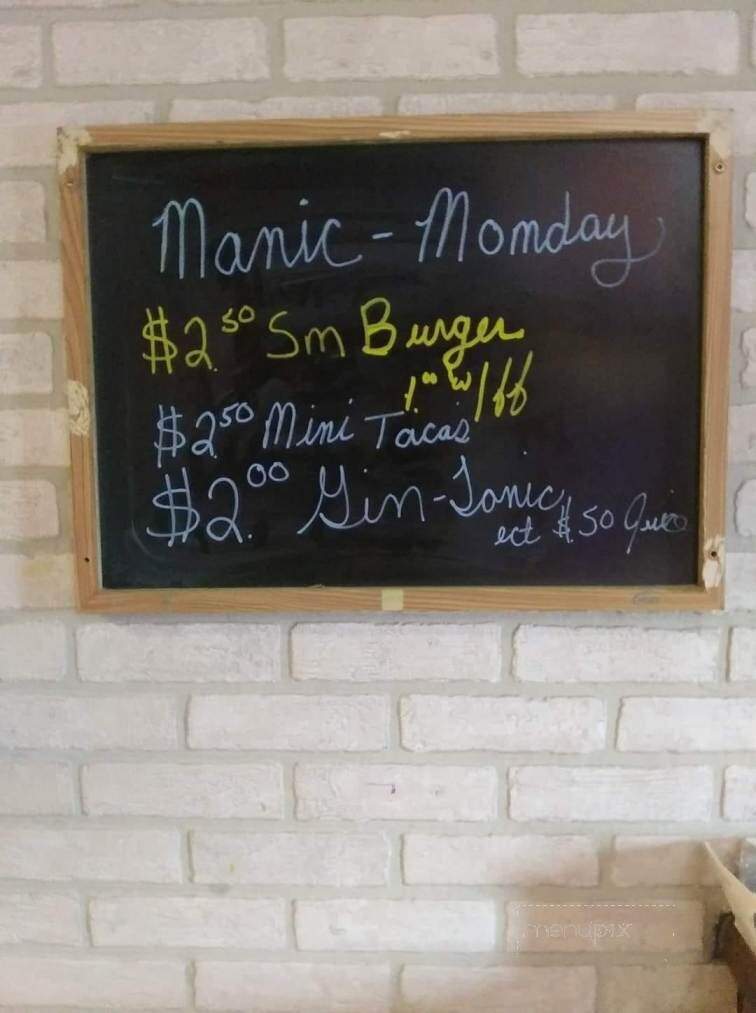 Manic - Monday
$2.50 Sm Burger
1.00 w/ff
$2.50 Mini Tacos
$2.00 Gin-Tonic
ect $.50 Juice
menupix